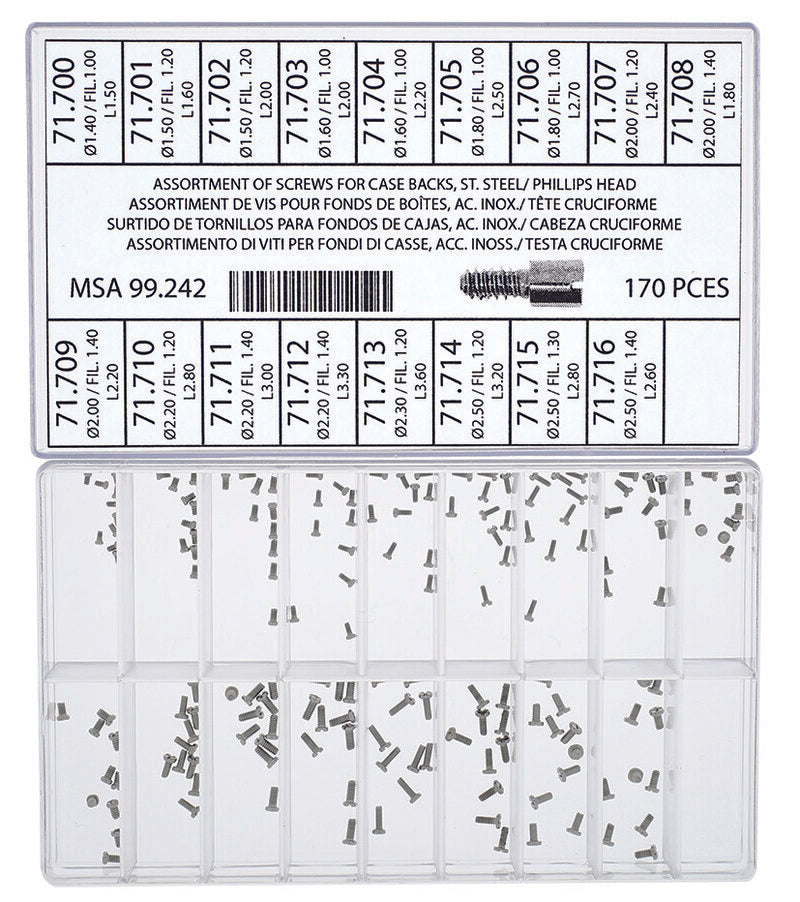 71.700
Ø1.40 / FIL.1.00
L1.50
71.701
Ø1.50 / FIL. 1.20
L1.60
71.702
Ø1.50 / FIL. 1.20
L2.00
71.703
Ø1.60 / FIL. 1.00
L2.00
71.704
Ø1.60 / FIL. 1.00
L2.20
71.705
Ø1.80 / FIL. 1.00
L2.50
71.706
Ø1.80 / FIL. 1.00
L2.70
71.707
Ø2.00 / FIL. 1.20
L2.40
71.708
Ø2.00 / FIL. 1.40
L1.80
ASSORTMENT OF SCREWS FOR CASE BACKS, ST. STEEL/ PHILLIPS HEAD
ASSORTIMENT DE VIS POUR FONDS DE BOÎTES, AC. INOX./ TÊTE CRUCIFORME
SURTIDO DE TORNILLOS PARA FONDOS DE CAJAS, AC. INOX./ CABEZA CRUCIFORME
ASSORTIMENTO DI VITI PER FONDI DI CASSE, ACC. INOSS./ TESTA CRUCIFORME
MSA 99.242
170 PCES
71.709
Ø2.00 / FIL. 1.40
L2.20
71.710
Ø2.20 / FIL. 1.20
L2.80
71.711
Ø2.20 / FIL. 1.40
L3.00
71.712
Ø2.20 / FIL. 1.40
L3.30
71.713
Ø2.30 / FIL. 1.30
L3.60
71.714
Ø2.50 / FIL. 1.20
L3.20
71.715
Ø2.50 / FIL. 1.30
L2.80
71.716
Ø2.50 / FIL. 1.40
L2.60